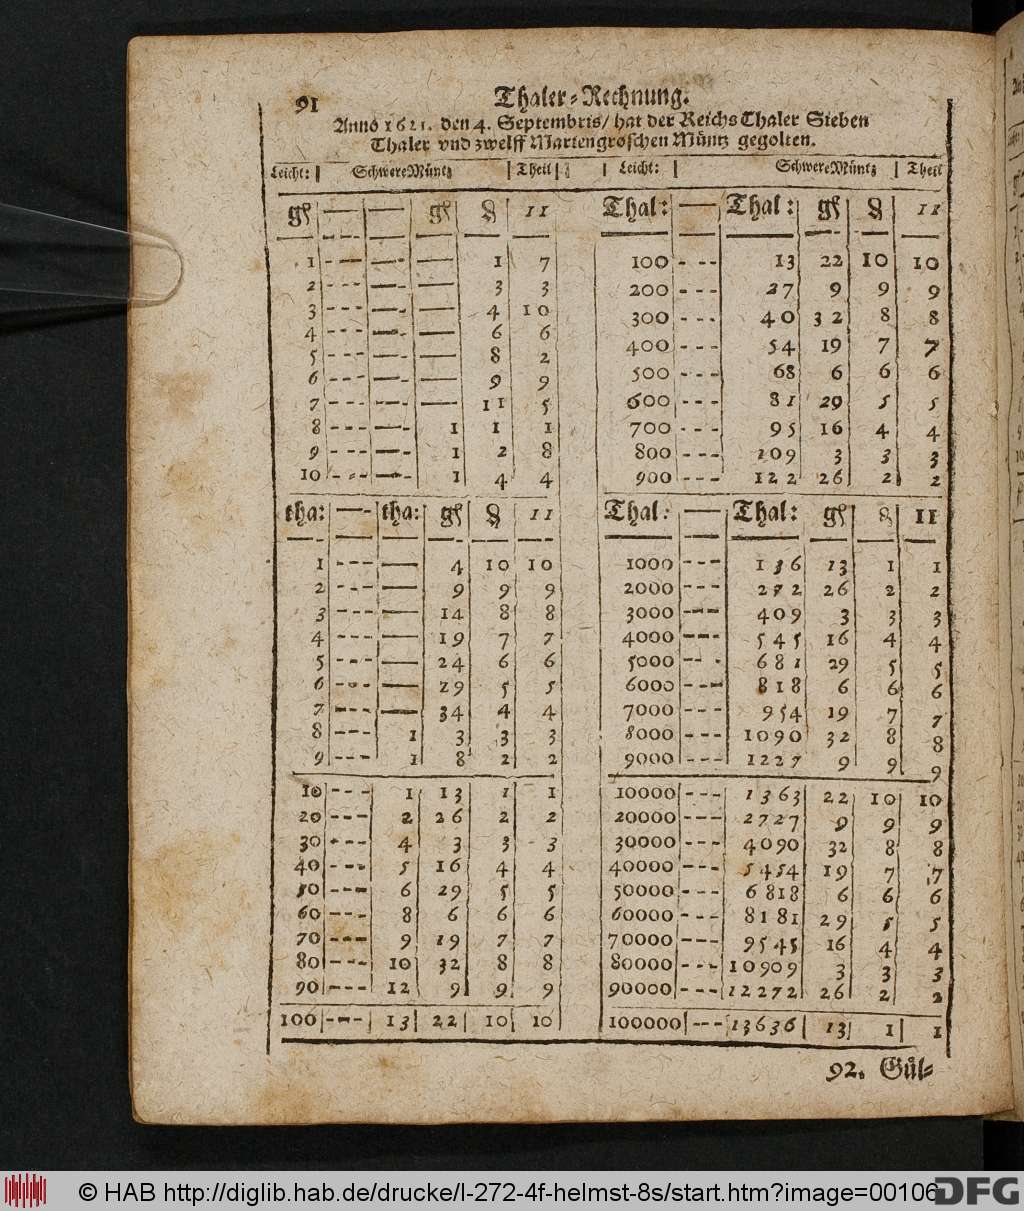 91 Thaler-Rechnung.
Anno 1621. den 4. Septembris/ hat der Reichs Thaler Sieben
Thaler vnd zwelff Mariengroschen Müntz gegolten.
Leicht: | Schwere Müntz | Theil
gl — — gl ₰ 11
1 --- — — 1 7
2 --- — — 3 3
3 --- — — 4 10
4 --- — — 6 6
5 --- — — 8 2
6 --- — — 9 9
7 --- — — 11 5
8 --- — 1 1 1
9 --- — 1 2 8
10 --- — 1 4 4
tha: — tha: gl ₰ 11
1 --- — 4 10 10
2 --- — 9 9 9
3 --- — 14 8 8
4 --- — 19 7 7
5 --- — 24 6 6
6 --- — 29 5 5
7 --- — 34 4 4
8 --- 1 3 3 3
9 --- 1 8 2 2
10 --- 1 13 1 1
20 --- 2 26 2 2
30 --- 4 3 3 3
40 --- 5 16 4 4
50 --- 6 29 5 5
60 --- 8 6 6 6
70 --- 9 19 7 7
80 --- 10 32 8 8
90 --- 12 9 9 9
100 --- 13 22 10 10
Leicht: | Schwere Müntz | Theil
Thal: — Thal: gl ₰ 11
100 --- 13 22 10 10
200 --- 27 9 9 9
300 --- 40 32 8 8
400 --- 54 19 7 7
500 --- 68 6 6 6
600 --- 81 29 5 5
700 --- 95 16 4 4
800 --- 109 3 3 3
900 --- 122 26 2 2
Thal: — Thal: gl ₰ 11
1000 --- 136 13 1 1
2000 --- 272 26 2 2
3000 --- 409 3 3 3
4000 --- 545 16 4 4
5000 --- 681 29 5 5
6000 --- 818 6 6 6
7000 --- 954 19 7 7
8000 --- 1090 32 8 8
9000 --- 1227 9 9 9
10000 --- 1363 22 10 10
20000 --- 2727 9 9 9
30000 --- 4090 32 8 8
40000 --- 5454 19 7 7
50000 --- 6818 6 6 6
60000 --- 8181 29 5 5
70000 --- 9545 16 4 4
80000 --- 10909 3 3 3
90000 --- 12272 26 2 2
100000 --- 13636 13 1 1
92. Gül-
© HAB http://diglib.hab.de/drucke/l-272-4f-helmst-8s/start.htm?image=00106
DFG